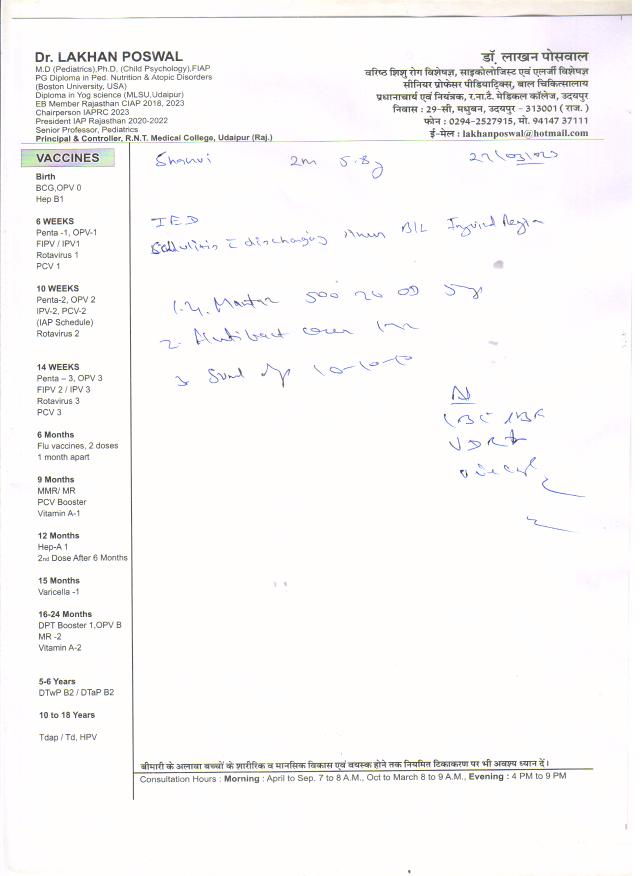 Dr. LAKHAN POSWAL
M.D (Pediatrics),Ph.D, (Child Psychology),FIAP
PG Diploma in Ped. Nutrition & Atopic Disorders
(Boston University, USA)
Diploma in Yog science (MLSU,Udaipur)
EB Member Rajasthan CIAP 2018, 2023
Chairperson IAPRC 2023
President IAP Rajasthan 2020-2022
Senior Professor, Pediatrics
Principal & Controller, R.N.T. Medical College, Udaipur (Raj.)
डॉ. लाखन पोसवाल
वरिष्ठ शिशु रोग विशेषज्ञ, साइकोलोजिस्ट एवं एलर्जी विशेषज्ञ
सीनियर प्रोफेसर पीडियाट्रिक्स, बाल चिकित्सालय
प्रधानाचार्य एवं नियंत्रक, र.ना.टै. मेडिकल कॉलेज, उदयपुर
निवास : 29-सी, मधुबन, उदयपुर - 313001 ( राज. )
फोन : 0294-2527915, मो. 94147 37111
ई-मेल : lakhanposwal@hotmail.com
VACCINES
Birth
BCG,OPV 0
Hep B1
6 WEEKS
Penta -1, OPV-1
FIPV / IPV1
Rotavirus 1
PCV 1
10 WEEKS
Penta-2, OPV 2
IPV-2, PCV-2
(IAP Schedule)
Rotavirus 2
14 WEEKS
Penta – 3, OPV 3
FIPV 2 / IPV 3
Rotavirus 3
PCV 3
6 Months
Flu vaccines, 2 doses
1 month apart
9 Months
MMR/ MR
PCV Booster
Vitamin A-1
12 Months
Hep-A 1
2nd Dose After 6 Months
15 Months
Varicella -1
16-24 Months
DPT Booster 1,OPV B
MR -2
Vitamin A-2
5-6 Years
DTwP B2 / DTaP B2
10 to 18 Years
Tdap / Td, HPV
2m 5.8
discharging B/L Region
1. 500
2.
3. 10-10-10
VDRL
बीमारी के अलावा बच्चों के शारीरिक व मानसिक विकास एवं वयस्क होने तक नियमित टिकाकरण पर भी अवश्य ध्यान दें।
Consultation Hours : Morning : April to Sep. 7 to 8 A.M., Oct to March 8 to 9 A.M., Evening : 4 PM to 9 PM